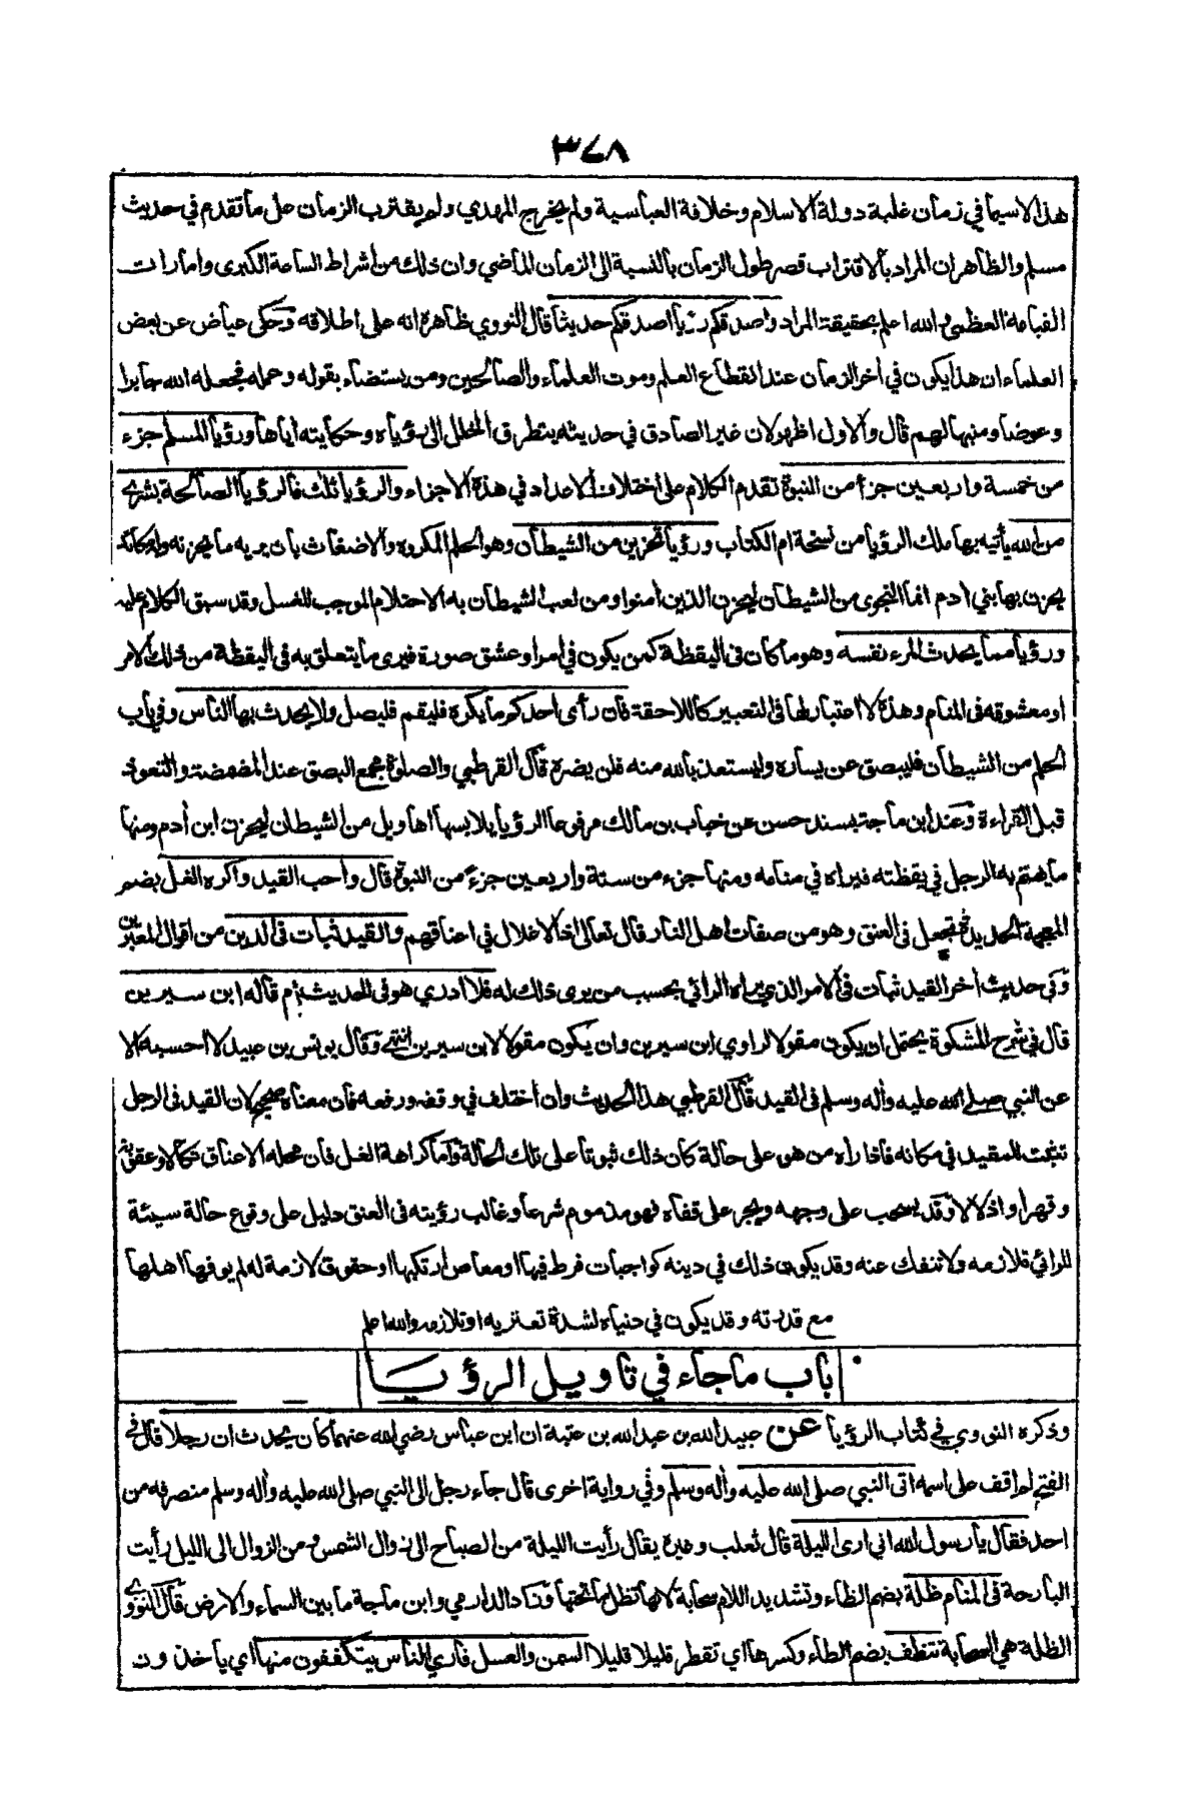 ٣٤٨
هذا لاسيما في زمان غلبة دولة الاسلام وخلافة العباسية ولم يخرج المهدي ولم يقترب الزمان على ما تقدم في حديث
مسلم والظاهر ان المراد بالاقتراب قصر طول الزمان بالنسبة الى الزمان الماضي وان ذلك من أشراط الساعة الكبرى وامارات
القيامة العظمى والله اعلم بحقيقة المراد واصدقكم رؤيا اصدقكم حديثا قال النووي ظاهره انه على اطلاقه وحكى عياض عن بعض
العلماء ان هذا يكون في أخر الزمان عند انقطاع العلم وموت العلماء والصالحين ومن يستضاء بقوله وعمله فجعله الله جابرا
وعوضا ومنبها لهم قال والاول اظهر لان غير الصادق في حديثه يتطرق الخلل الى رؤياه وحكايته اياها ورؤيا المسلم جزء
من خمسة واربعين جزأ من النبوة تقدم الكلام على اختلاف الاعداد في هذة الاجزاء والرؤيا ثلث فالرؤيا الصالحة بشرى
من الله يأتيه بها ملك الرؤيا من نسخة ام الكتاب ورؤيا تحزين من الشيطان وهو الحلم المكروه والاضغاث بان يريه ما يحزنه وله مكائد
يحزن بها بني ادم انما النجوى من الشيطان ليحزن الذين أمنوا ومن لعب الشيطان به الاحتلام الموجب للغسل وقد سبق الكلام عليه
ورؤيا مما يحدث المرء نفسه وهو ما كان في اليقظة كمن يكون في امر او عشق صورة فيرى ما يتعلق به في اليقظة من ذلك الامر
او معشوقه في المنام وهذة لا اعتبار لها في التعبير كاللاحقة فان رأى احدكم ما يكره فليقم فليصل ولا يحدث بها الناس وفي باب
الحلم من الشيطان فليبصق عن يساره وليستعذ بالله منه فلن يضره قال القرطبي والصلوة تجمع البصق عند المضمضة والتعوذ
قبل القراءة وعند ابن ماجة بسند حسن عن خباب بن مالك مرفوعا الرؤيا بلابسها اهاويل من الشيطان ليحزن ابن أدم ومنها
ما يهتم به الرجل في يقظته فيراه في منامه ومنها جزء من ستة واربعين جزءً من النبوة قال وأحب القيد واكره الغل بضم
المعجمة الحديدة تجعل في العنق وهو من صفات اهل النار قال تعالى اذ الاغلال في اعناقهم والقيد ثبات في الدين من اقوال المعبرين
وفي حديث أخر القيد ثبات في الامر الذي يراه الرائي بحسب من يرى ذلك له فلا ادري هو في الحديث ام قاله ابن سيرين
قال في شرح المشكوة يحتمل ان يكون مقولا لراوي ابن سيرين وان يكون مقولا لابن سيرين انتهى وقال يونس بن عبيد لا احسبه الا
عن النبي صلى الله عليه وأله وسلم في القيد قال القرطبي هذا الحديث وان أختلف في وقفه ورفعه فان معناه صحيح لان القيد في الرجل
تثبت للمقيد في مكانه فاذا رأه من هو على حالة كان ذلك ثبوتا على تلك الحالة واما كراهة الغل فان محله الاعناق نكالا وعقوبة
وقهرا واذلالا وقد يسحب على وجهه ويجر على قفاه فهو مذموم شرعا وغالب رؤيته في العنق دليل على وقوع حالة سيئة
للرائي تلازمه ولا تنفك عنه وقد يكون ذلك في دينه كواجبات فرط فيها او معاص ارتكبها او حقوق لازمة له لم يوفها اهلها
مع قدرته وقد يكون في دنياه لشدة تعتريه او تلازمه والله اعلم
باب ما جاء في تاويل الرؤيا
وذكره النووي في كتاب الرؤيا عن عبيد الله بن عبد الله بن عتبة ان ابن عباس رضي الله عنهما كان يحدث ان رجلا قال في
الفتح لم اقف على اسمه اتى النبي صلى الله عليه وأله وسلم وفي رواية اخرى قال جاء رجل الى النبي صلى الله عليه وأله وسلم منصرفه من
احد فقال يا رسول الله اني ارى الليلة قال ثعلب وغيره يقال رأيت الليلة من الصباح الى زوال الشمس ومن الزوال الى الليل رأيت
البارحة في المنام ظلة بضم الظاء وتشديد اللام سحابة لانها تظل ما تحتها وزاد الدارمي وابن ماجة ما بين السماء والارض قال النووي
الظلة هي السحابة تنطف بضم الطاء وكسرها اي تقطر قليلا قليلا السمن والعسل فارى الناس يتكففون منها اي ياخذون